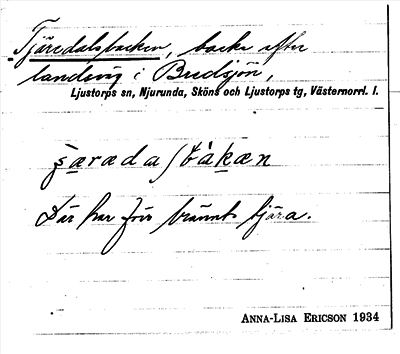 Tjäredalsbacken, backe efter
landsväg i Bredsjön,
Ljustorps sn, Njurunda, Sköns och Ljustorps tg, Västernorrl. l.
Där har förr bränts tjära.
ANNA-LISA ERICSON 1934